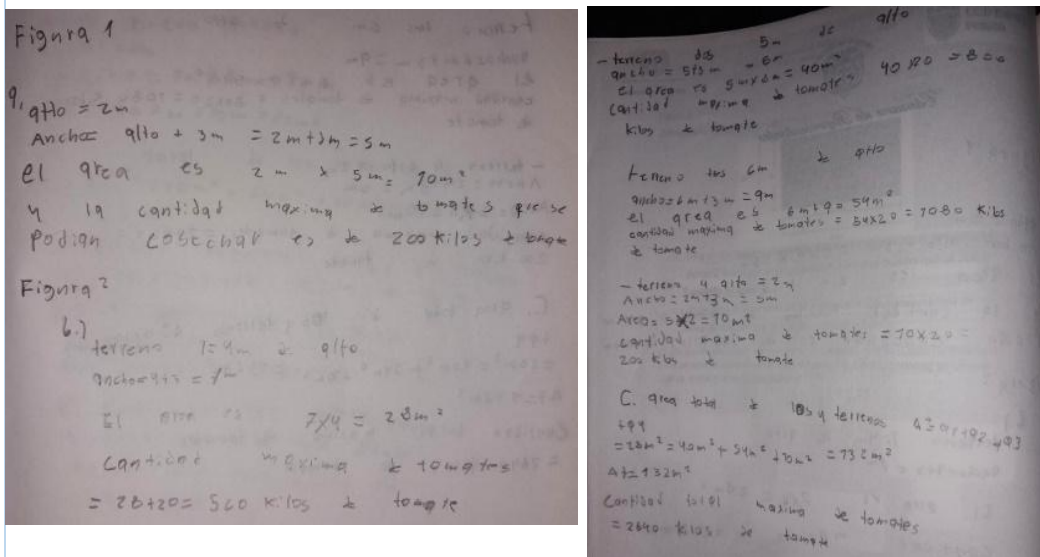 Figura 1
a, alto = 2m
Ancho= alto + 3m = 2m+3m = 5m
el area es 2m x 5m = 10m²
y la cantidad maxima de tomates que se
Podian cosechar es de 200 kilos de tomate
Figura 2
b.)
terreno 1=4m de alto
ancho=4+3 = 7m
El area es 7x4 = 28m²
Cantidad maxima de tomates
= 28+20= 560 Kilos de tomate
- terreno dos 5m de alto
ancho = 5+3m = 8m
El area es 5mx8m = 40m²
Cantidad maxima de tomates 40x20 = 800
Kilos de tomate
terreno tres 6m de alto
ancho=6m+3m = 9m
el area es 6mx9= 54m²
cantidad maxima de tomates = 54x20 = 1080 Kilos
de tomate
- terreno 4 alto = 2m
Ancho = 2m+3m = 5m
Area= 5x2 = 10m²
cantidad maxima de tomates = 10x20 =
200 kilos de tomate
C. area total de los 4 terrenos A= a1+a2+a3
+a4
=28m²+40m²+54m²+10m² = 132m²
At=132m²
Cantidad total maxima de tomates
= 2640 kilos de tomate